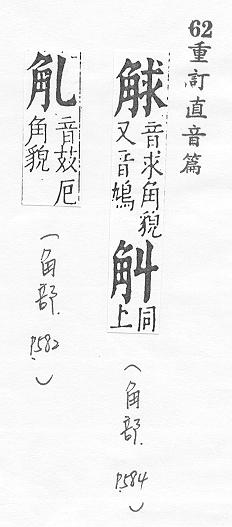 62重訂直音篇
觩
音求角貌
又音鳩
觓
同
上
(角部. P.584)
音
角貌
(角部. P.582)